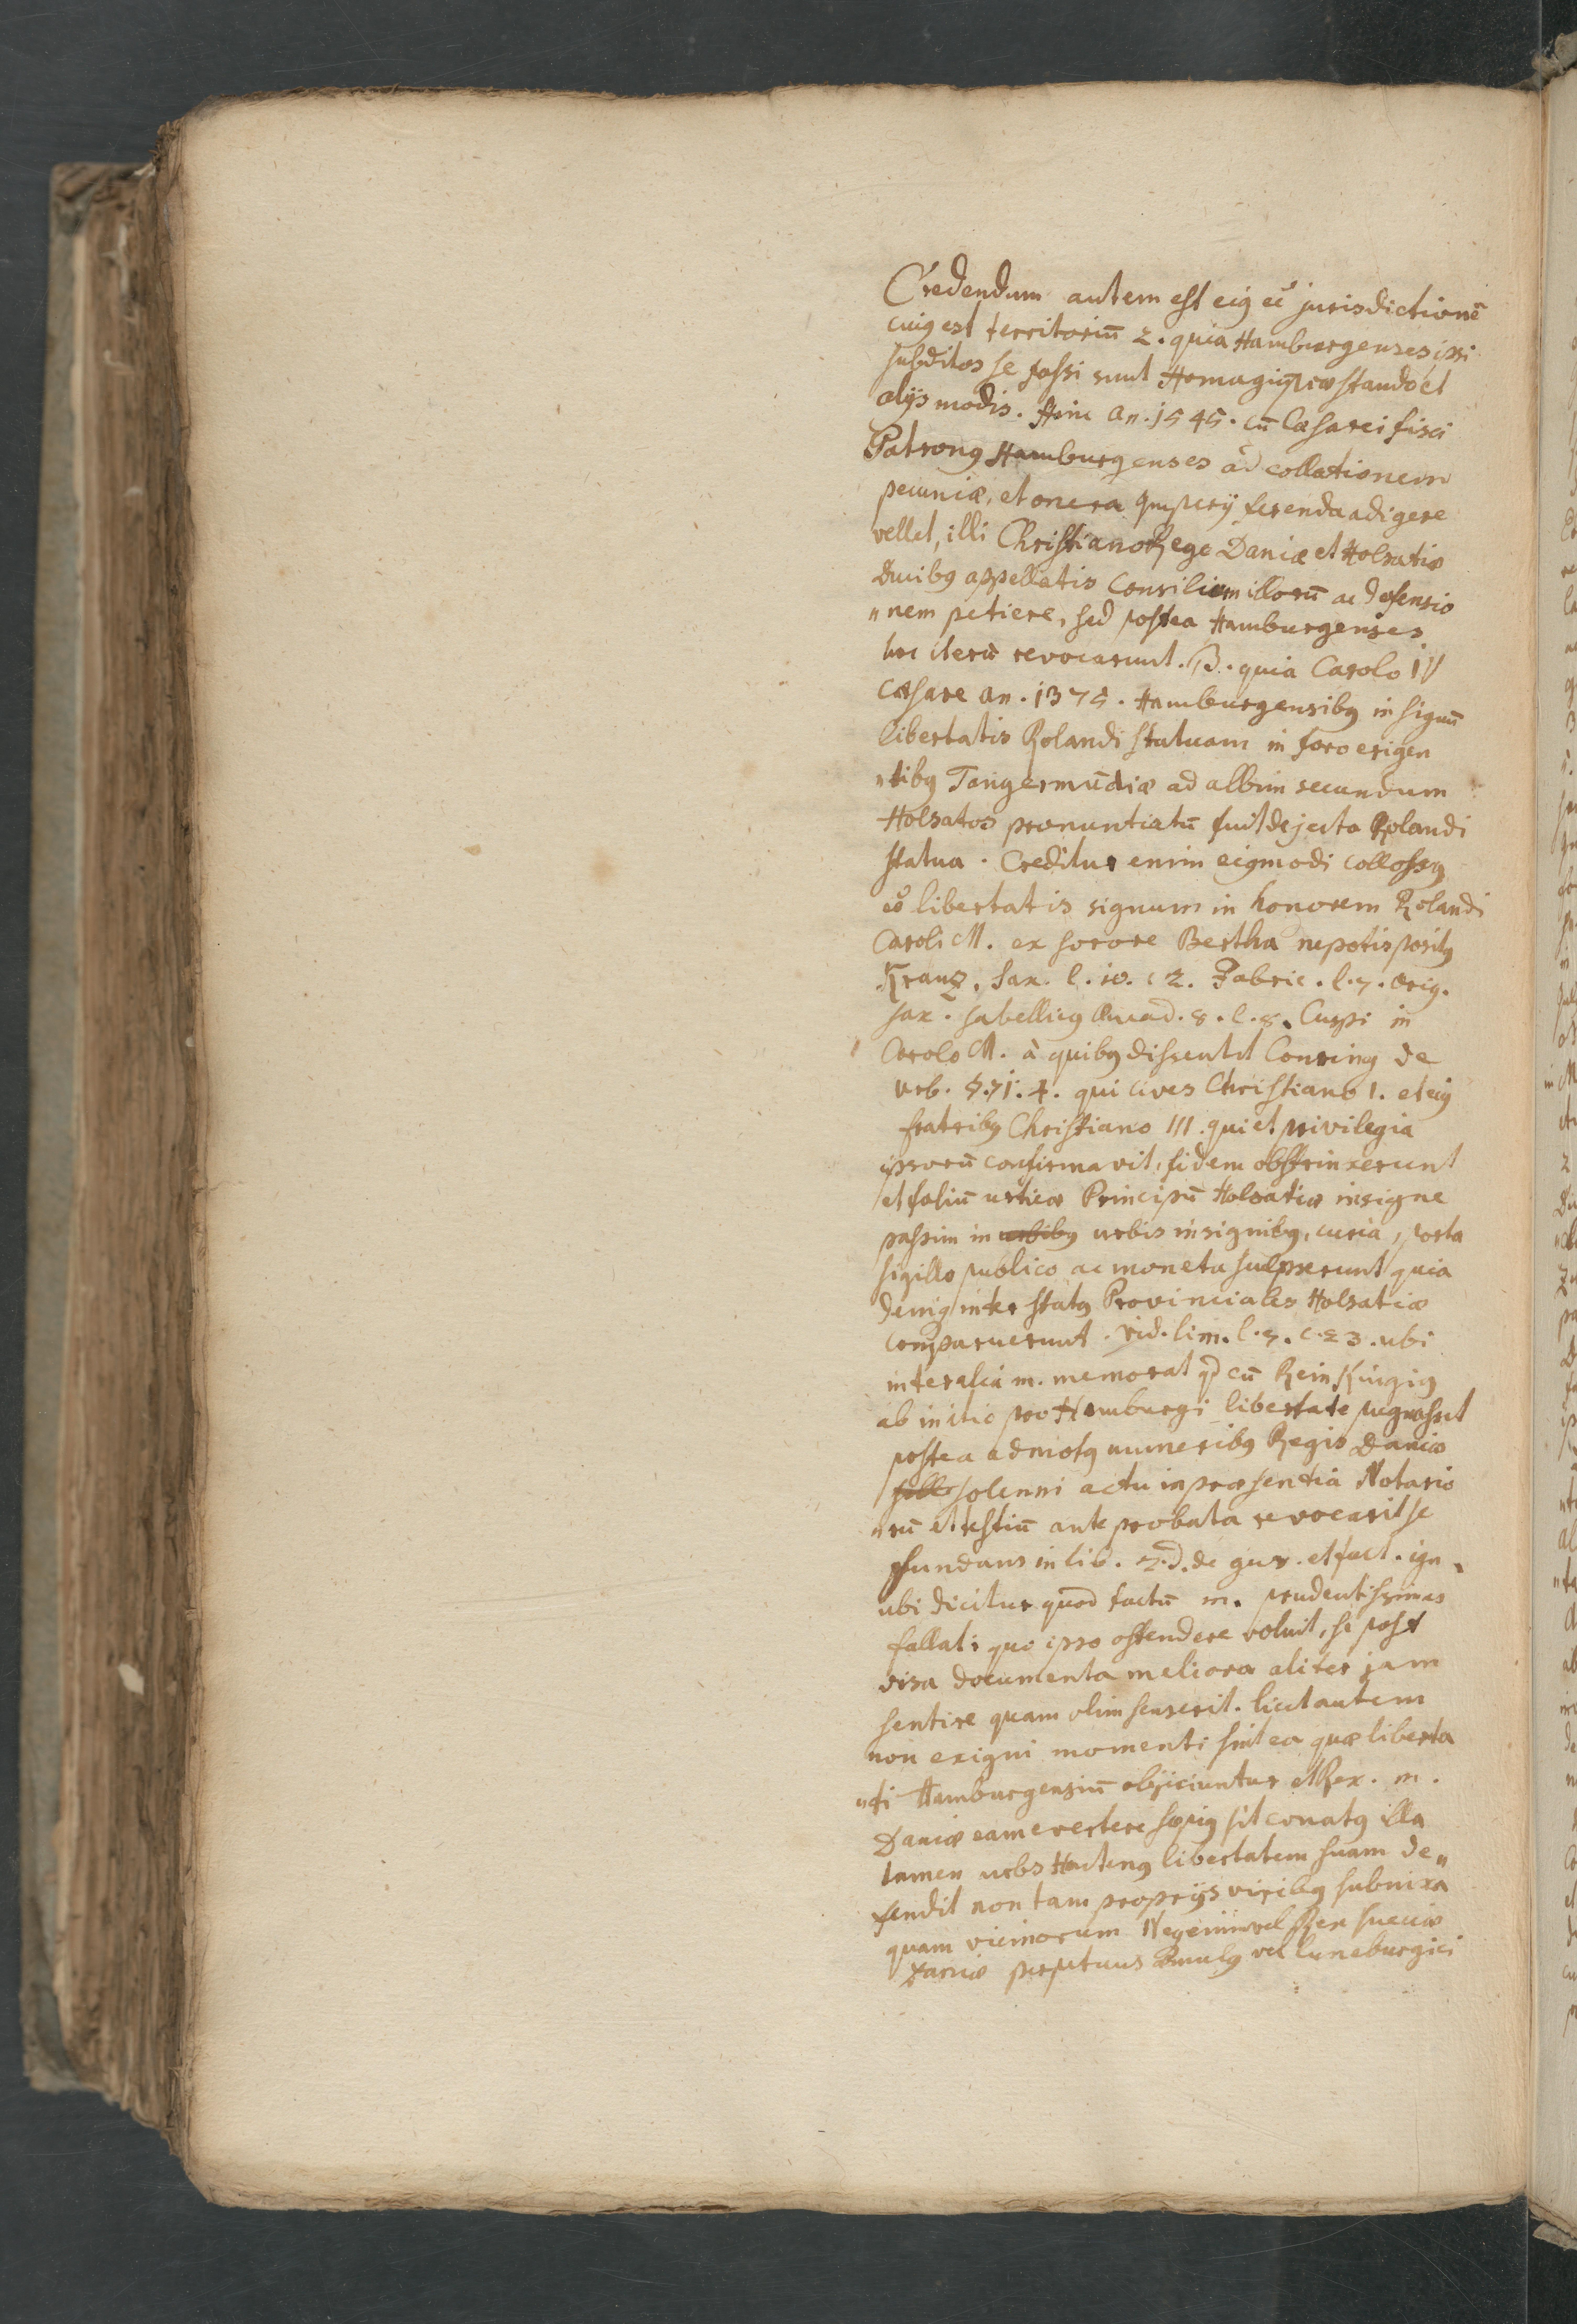 Credendum autem est eiꝰ eē jurisdictionē
cuiꝰ est territoriū 2. quia Hamburgenses ipsi
subditos se fassi sunt Homagiū præstando et
alijs modis. Hinc an. 1545. cū Cæsarei fisci
Patronꝰ Hamburgenses ad collationem
pecuniæ, et onera Imperij ferenda adigere
vellet, illi Christiano Rege Daniæ et Holsatiæ
Ducibꝰ appellatis Consilium illorū ac defensio
„nem petiere, sed postea Hamburgenses
hoc iterū revocarunt. 3. quia Carolo IV
Cæsare an. 1375. Hamburgensibꝰ in signū
libertatis Rolandi statuam in foro erigen
„tibꝰ Tangermūdiæ ad albim secundum
Holsatos pronuntiatū fuit dejecta Rolandi
statua. Creditur enim eiꝰmodi collossꝰ
eē libertatis signum in honorem Rolandi
Caroli M. ex sorore Bertha nepotis positꝰ
Kranz. Sax. l. 10. c 2. Fabric. l. 7. orig.
sax. Sabellicꝰ Ennead. 8. l. 8. Cuspi in
Carolo M. à quibꝰ dissentit Conring de
urb. §. 71. 4. qui cives Christiano 1. et eiꝰ
fratribꝰ Christiano III. qui et privilegia
ipsorū confirmavit, fidem obstrinxerunt
et foliū urticæ Principū Holsatiæ insigne
passim in urbibꝰ urbis insignibꝰ, curia, porta
sigillo publico ac moneta sculpserunt quia
deniqꝫ inter statꝰ Provinciales Holsatiæ
comparuerunt. vid. lim. l. 7. c. 23. ubi
inter alia m. memorat qd cū Reinkingiꝰ
ab initio pro Hamburgi libertate pugnasset
postea admotꝰ muneribꝰ Regis Daniæ
solle solenni actu in præsentia Notario
„rū et testiū ante probata revocarit se
fundans in lib. 2. d. de jur. et fact. ign.
ubi dicitur quod factū m. prudentissimos
fallat; quo ipso ostendere voluit, se post
visa documenta meliora aliter jam
sentire quam olim senserit. licet autem
non exigui momenti sint ea quæ liberta
„ti Hamburgensiū objiciuntur et Rex. m.
Daniæ eam evertere sæpiꝰ sit conatꝰ illa
tamen urbs Hactenꝰ libertatem suam de„
fendit non tam proprijs viribꝰ subnixa
quam vicinorum Nec enim vel Rex sueciæ
Daniæ perpetuus Æmulꝰ vel luneburgici